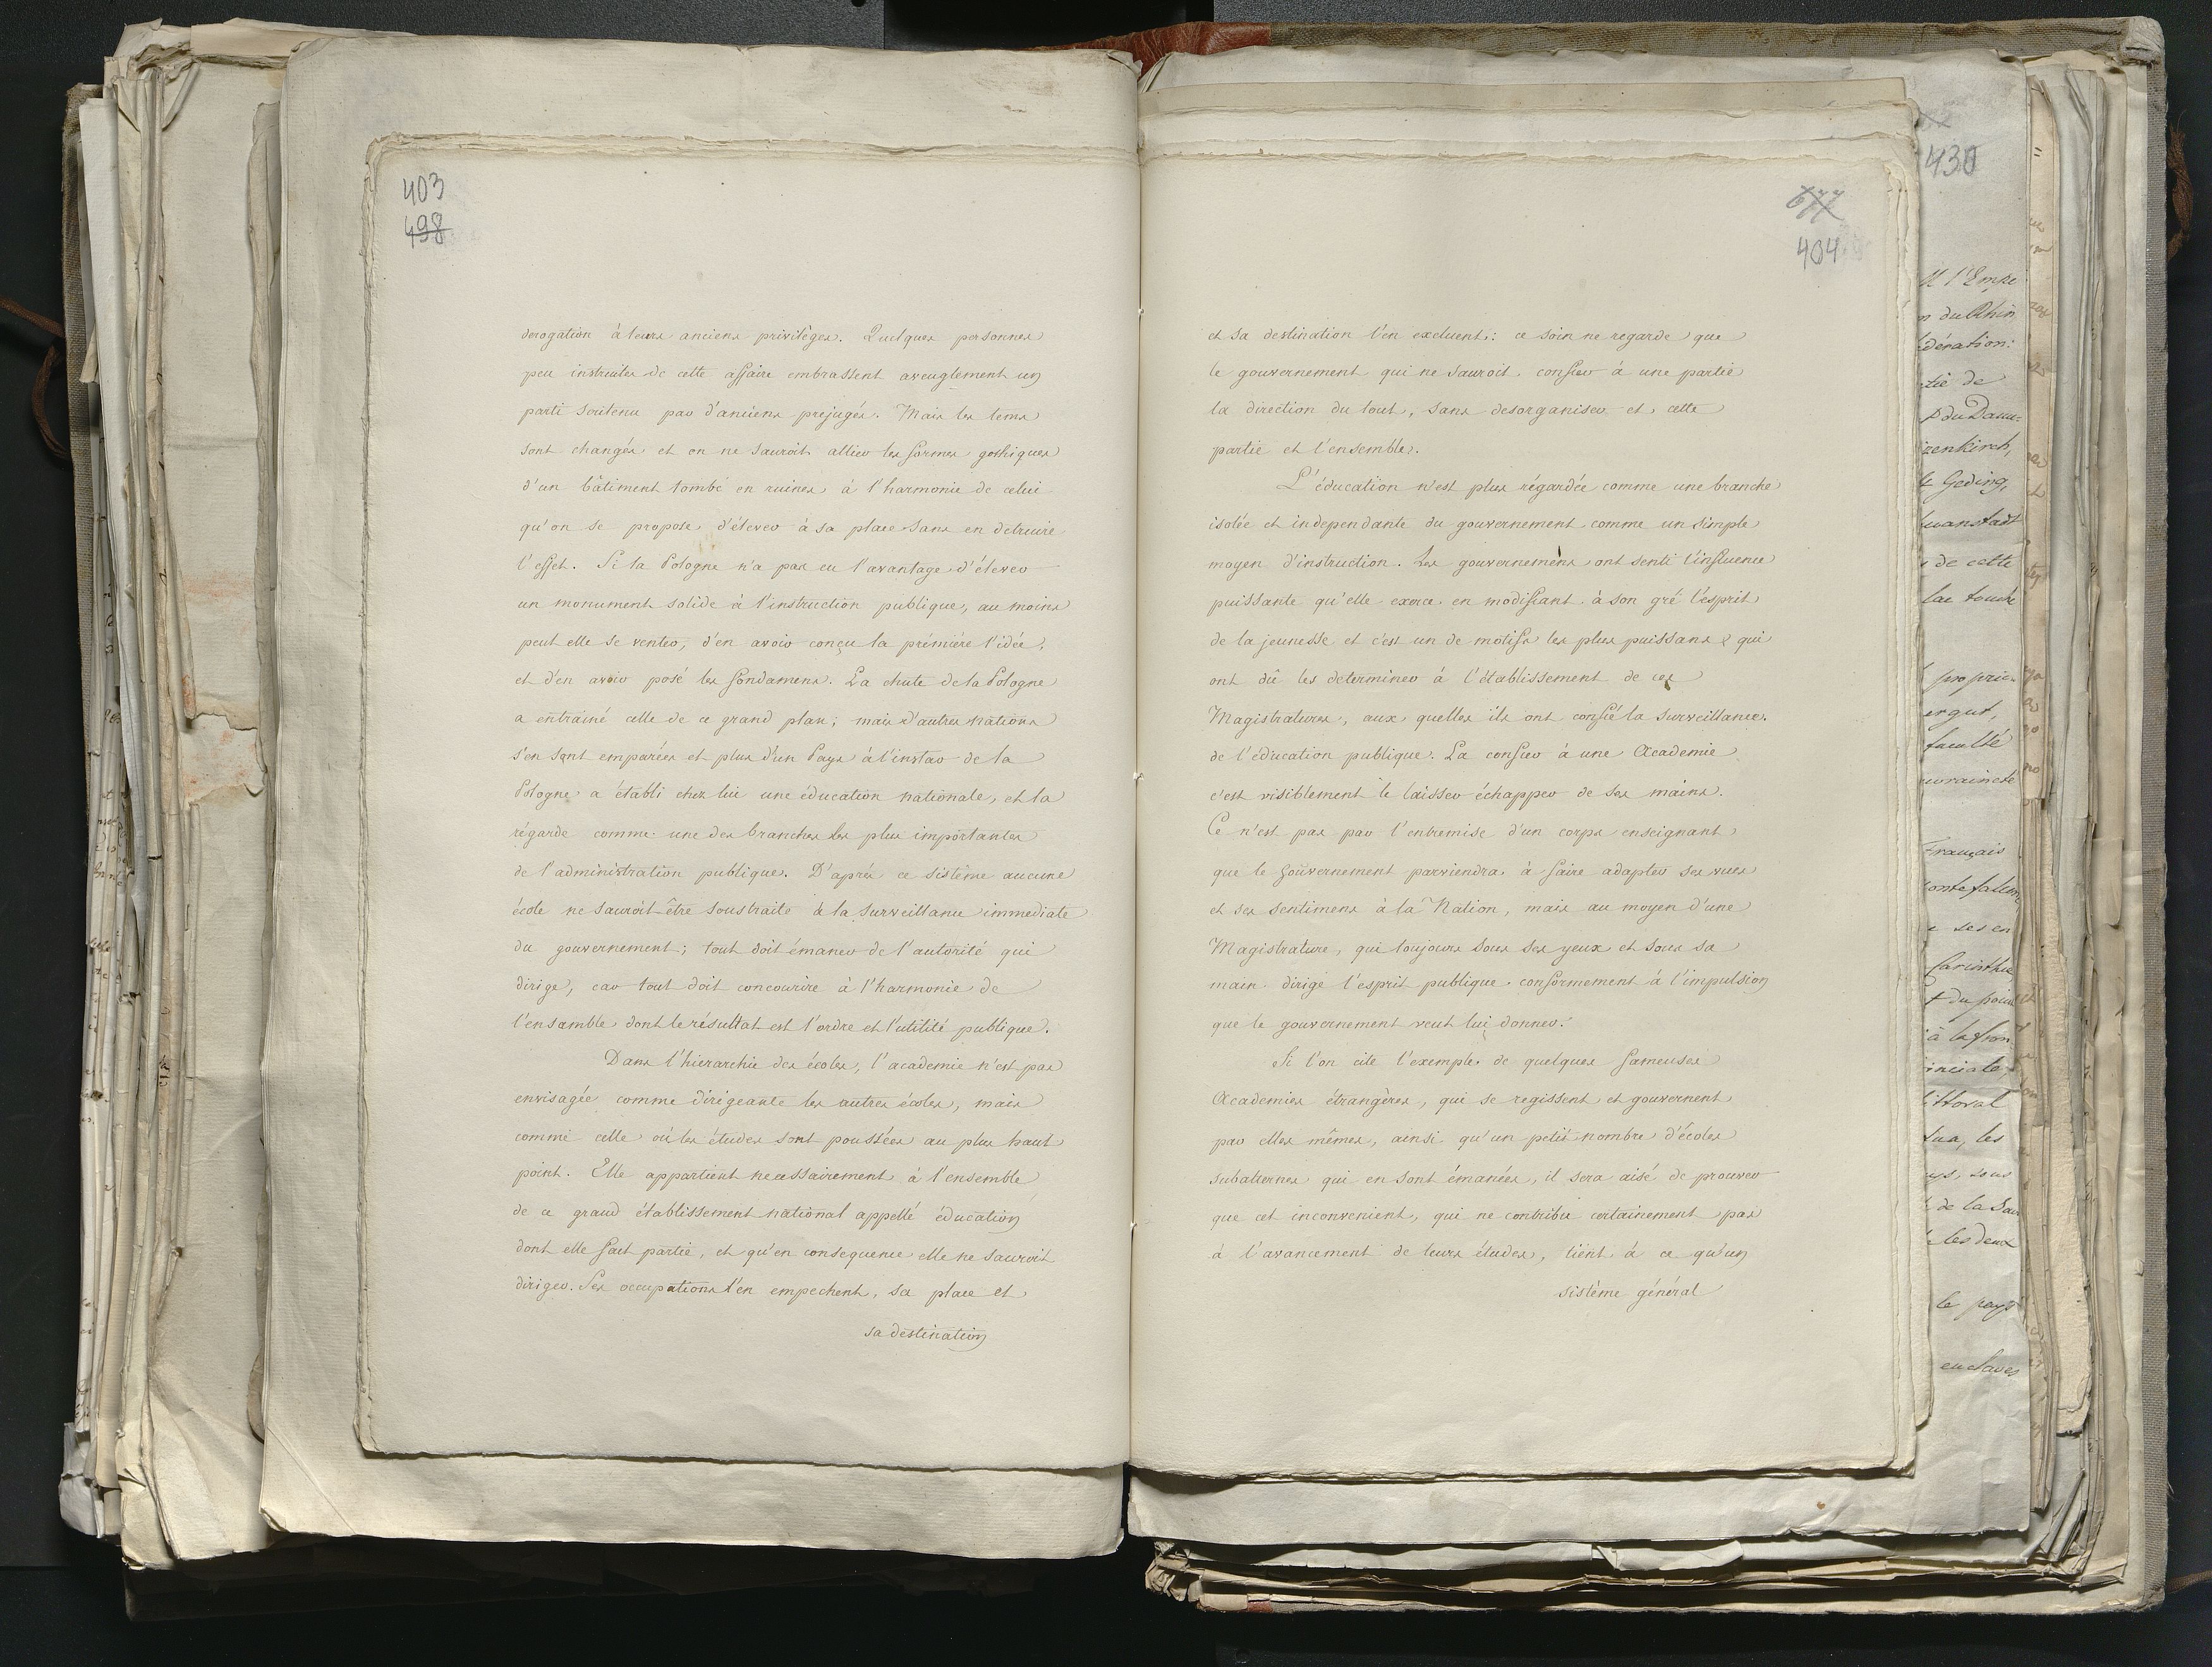 403
498
derogation à leurs anciens privilèges. Quelques personnes
peu instruites de cette affaire embrassent aveuglement un
parti soutenu par d'anciens prejugés. Mais les tems
sont changés et on ne sauroit allier les formes gothiques
d'un bâtiment tombé en ruines à l'harmonie de celui
qu'on se propose d'élever à sa place sans en detruire
l'effet. Si la Pologne n'a pas eu l'avantage d'élever
un monument solide à l'instruction publique, au moins
peut elle se venter, d'en avoir conçu la prémière l'idée,
et d'en avoir posé les fondamens. La chute de la Pologne
a entrainé celle de ce grand plan; mais d'autres nations
s'en sont emparées et plus d'un Pays à l'instar de la
Pologne a établi chez lui une éducation nationale, et la
régarde comme une des branches les plus importantes
de l'administration publique. D'après ce sistême aucune
école ne sauroit être soustraite à la surveillance immediate
du gouvernement; tout doit émaner de l'autorité qui
dirige, car tout doit concourire à l'harmonie de
l'ensamble dont le résultat est l'ordre et l'utilité publique.
Dans l'hierarchie des écoles, l'academie n'est pas
envisagée comme dirigeante les autres écoles, mais
comme celle où les études sont poussées au plus haut
point. Elle appartient necessairement à l'ensemble
de ce grand établissement national appellé éducation
dont elle fait partie, et qu'en consequence elle ne sauroit
diriger. Ses occupations l'en empechent, sa place et
sa destination
677
404
et sa destination l'en excluent: ce soin ne regarde que
le gouvernement qui ne sauroit confier à une partie
la direction du tout, sans desorganiser et cette
partie et l'ensemble.
L'éducation n'est plus régardée comme une branche
isolée et independante du gouvernement comme un simple
moyen d'instruction. Les gouvernemens ont senti l'influence
puissante qu'elle exerce en modifiant à son gré l'ésprit
de la jeunesse et c'est un de motifs les plus puissans qui
ont dû les determiner à l'établissement de ces
Magistratures, aux quelles ils ont confié la surveillance
de l'éducation publique. La confier à une Academie
c'est visiblement le laisser échapper de ses mains.
Ce n'est pas par l'entremise d'un corps enseignant
que le gouvernement parviendra à faire adapter ses vues
et ses sentimens à la Nation, mais au moyen d'une
Magistrature, qui toujours sous ses yeux et sous sa
main dirige l'esprit publique conformement à l'impulsion
que le gouvernement veut lui donner.
Si l'on cite l'exemple de quelques fameuses
Academies étrangères, qui se regissent et gouvernent
par elles mêmes, ainsi qu'un petit nombre d'écoles
subalternes qui en sont émanées, il sera aisé de prouver
que cet inconvenient, qui ne contribue certainement pas
à l'avancement de leurs études, tient à ce qu'un
sistême général
430
l'Empe
du Rhin
dération:
tie de
du Danu-
zenkirch,
Geding,
de cette
ergut,
faculté
uveraineté
Français
ses en
Carinthie
inciale,
ittoral
les
sous
de la Sau
les deux
le pays
enclaves